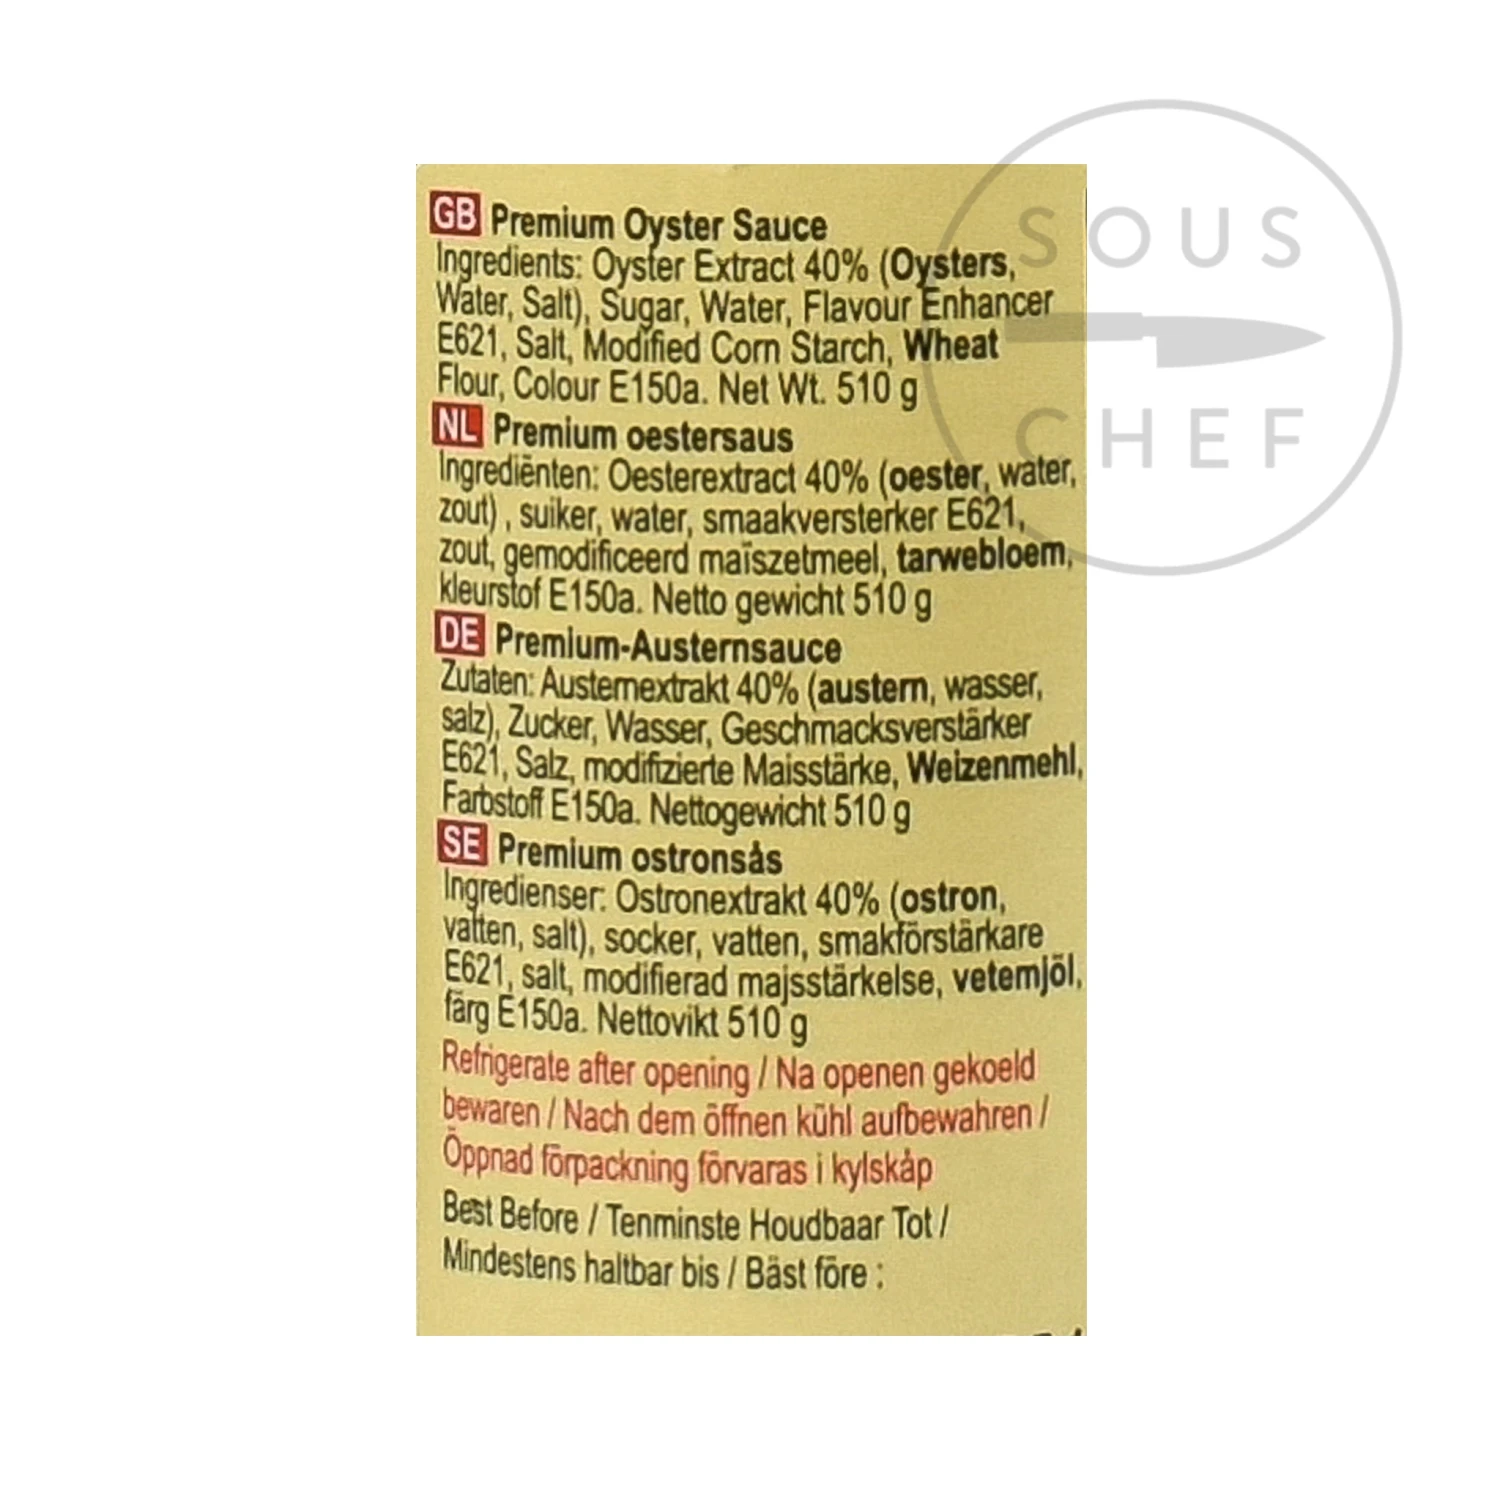 GB Premium Oyster Sauce
Ingredients: Oyster Extract 40% (Oysters,
Water, Salt), Sugar, Water, Flavour Enhancer
E621, Salt, Modified Corn Starch, Wheat
Flour, Colour E150a. Net Wt. 510 g
NL Premium oestersaus
Ingrediënten: Oesterextract 40% (oester, water,
zout) , suiker, water, smaakversterker E621,
zout, gemodificeerd maïszetmeel, tarwebloem,
kleurstof E150a. Netto gewicht 510 g
DE Premium-Austernsauce
Zutaten: Austernextrakt 40% (austern, wasser,
salz), Zucker, Wasser, Geschmacksverstärker
E621, Salz, modifizierte Maisstärke, Weizenmehl,
Farbstoff E150a. Nettogewicht 510 g
SE Premium ostronsås
Ingredienser: Ostronextrakt 40% (ostron,
vatten, salt), socker, vatten, smakförstärkare
E621, salt, modifierad majsstärkelse, vetemjöl,
färg E150a. Nettovikt 510 g
Refrigerate after opening / Na openen gekoeld
bewaren / Nach dem öffnen kühl aufbewahren /
Öppnad förpackning förvaras i kylskåp
Best Before / Tenminste Houdbaar Tot /
Mindestens haltbar bis / Bäst före :
SOUS
CHEF